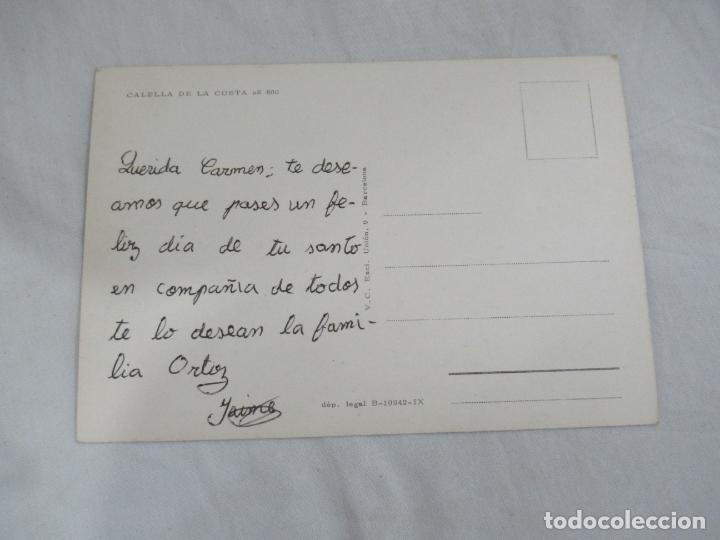 CALELLA DE LA COSTA
Querida Carmen; te dese-
amos que pases un fe-
liz dia de tu santo
en compañia de todos
te lo desean la fami-
lia Ortoz
Jaime
V.C. Excl. Unión, 9 - Barcelona
dép. legal B-10942-IX
todocoleccion
todocoleccion.net